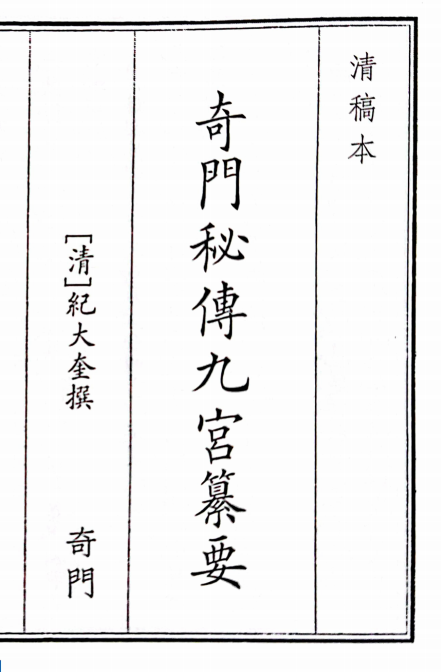 清稿本
奇門秘傳九宮纂要
[清]紀大奎撰
奇門